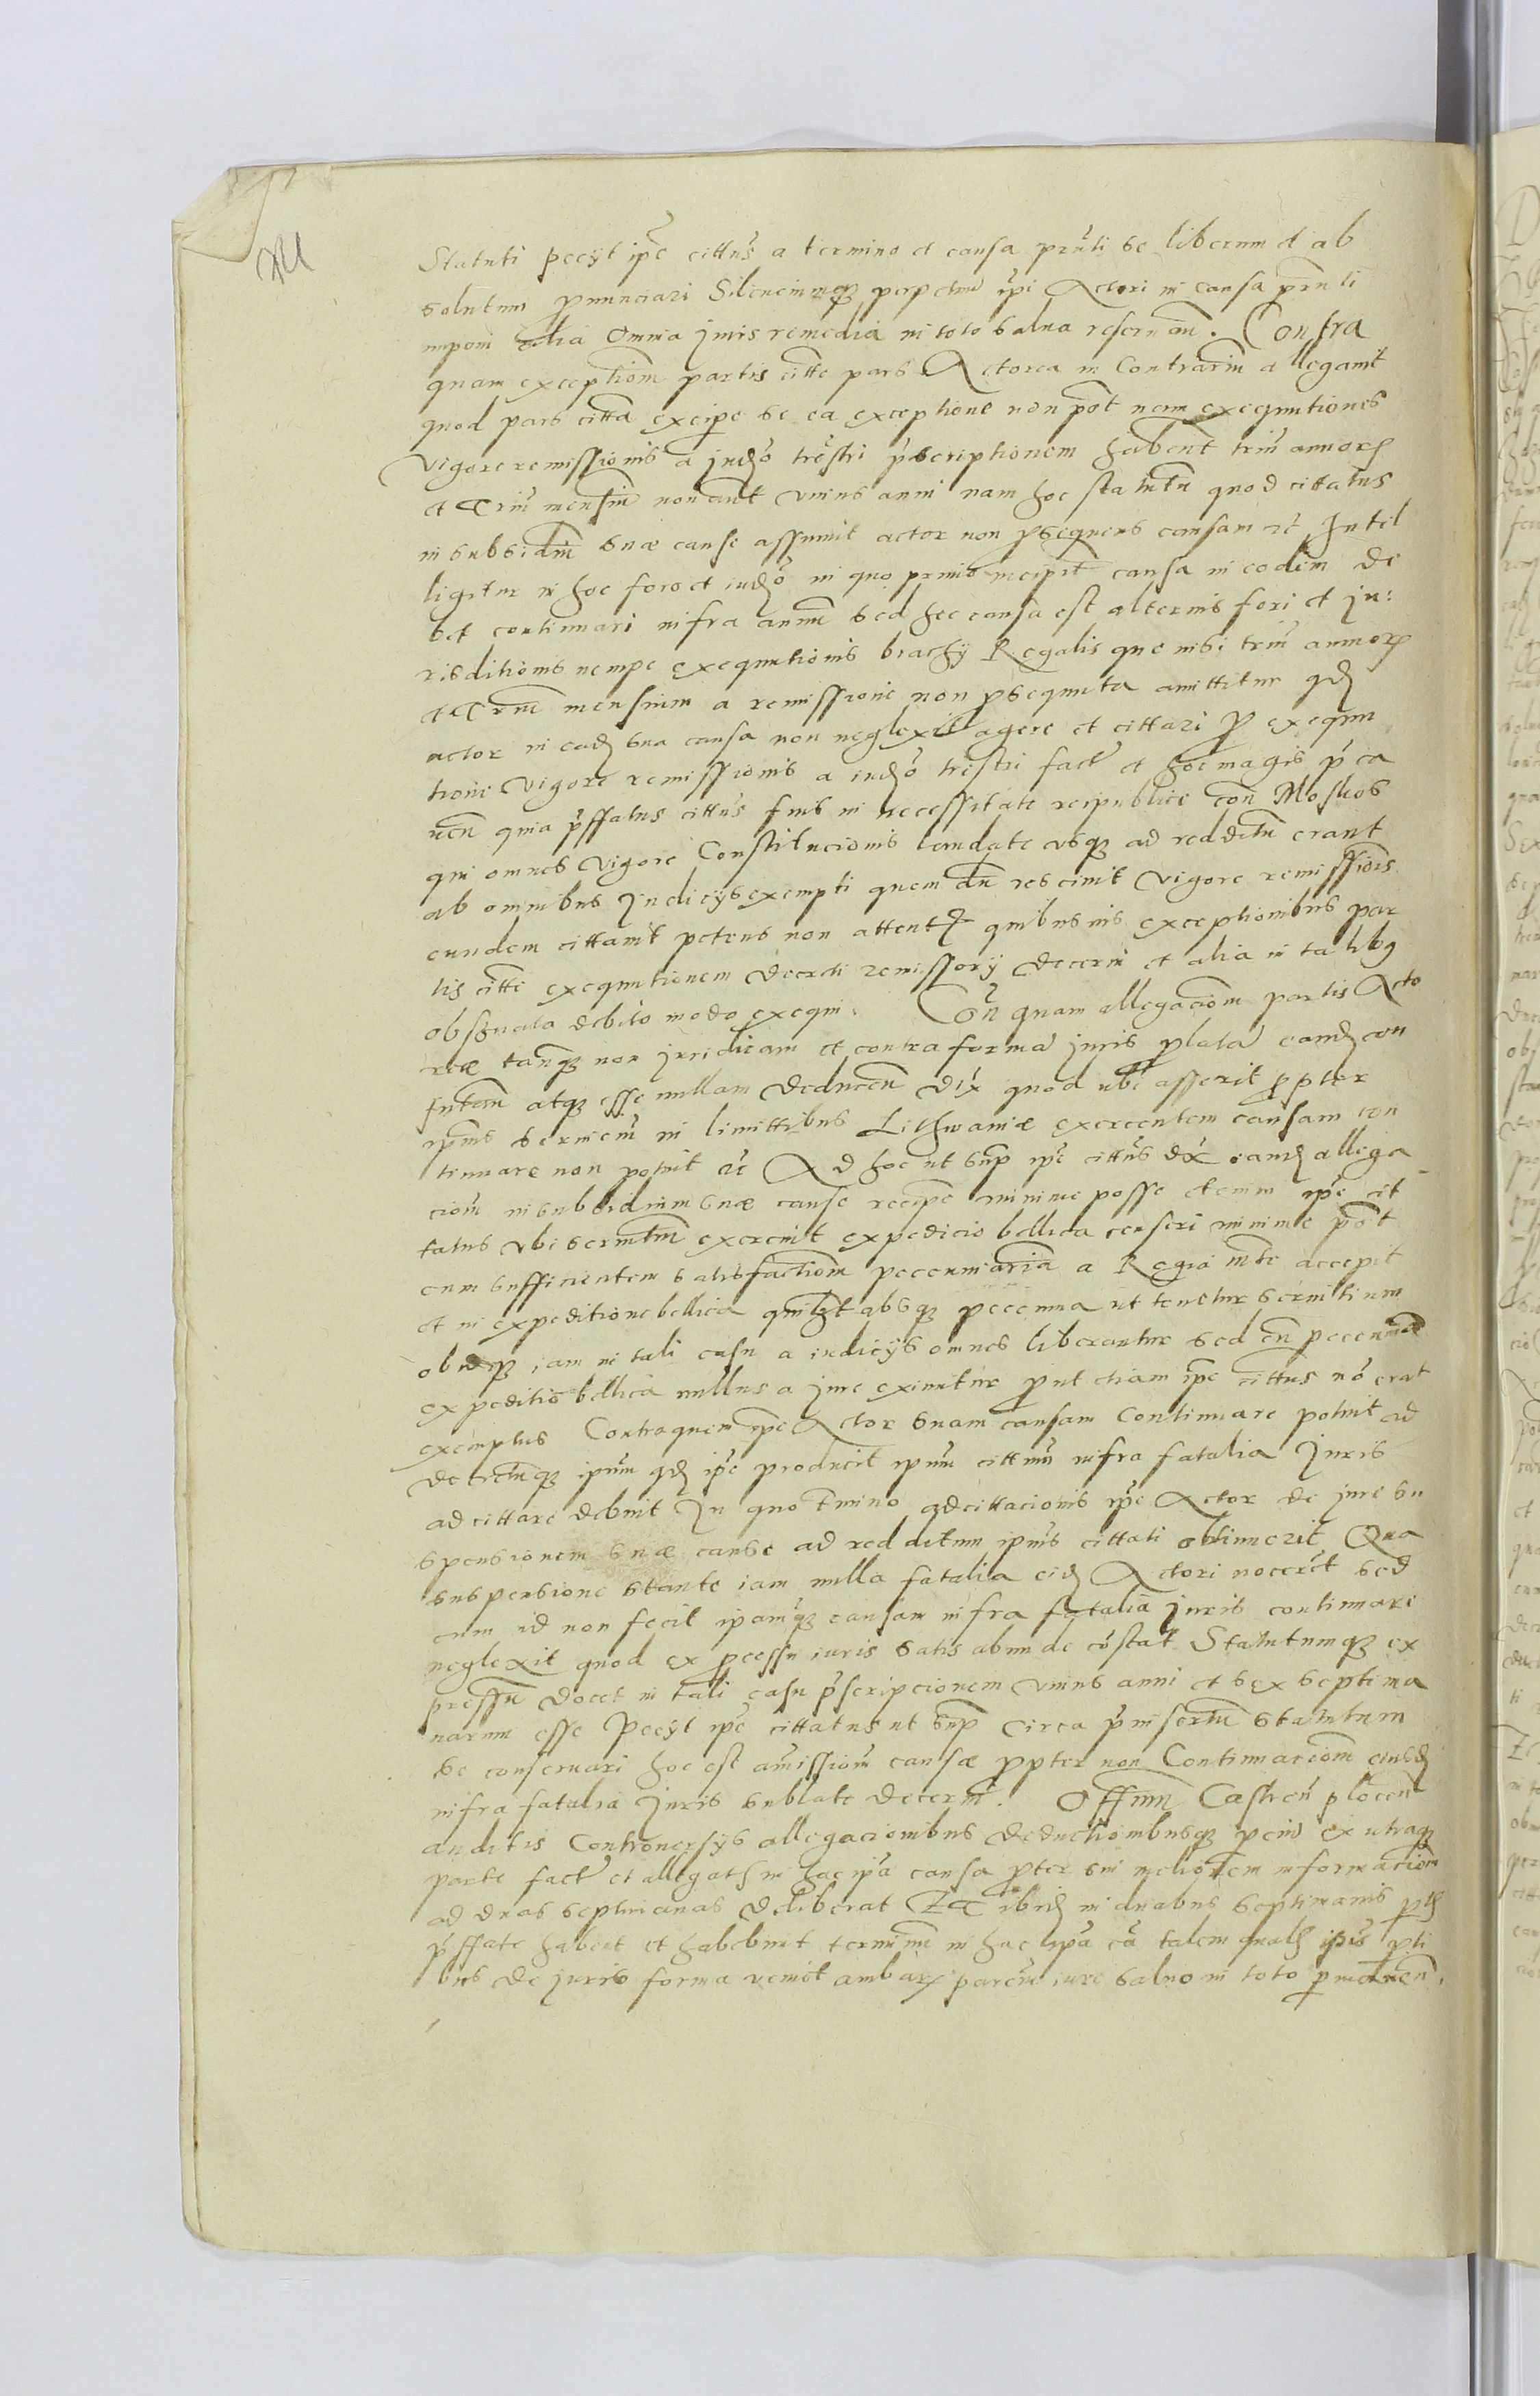 Statuti pecÿt ip̃e cittus̃ a termino et causa pr̃nti se liberum et ab
solutum p̃nunciari Silenciumq₃ perpetuũ ip̃i Actori in causa prñti
imponi Alia omnia juris remedia in toto salua reseruañ. Contra
quam exceptioñm partis citt̃e pars Actorea in Contrariũm allegauit
quod pars citt̃a excipe se ea exceptione non pot̃ nam exequutiones
vigore remissionis a judõ trẽstri p̃scriptionem habent triũ annorꝝ
et Triũ mensiũm non aut̃ vnius anni nam hoc statutũ quod cittatus
in subsidiũm suæ cause assumit actor non p̃sequens causam etc̃ Intel
ligitur in hoc foro et iudõ in quo primo incipit̃ causa in eodem de
bet continuari infra annũm sed hec causa est alterius fori et ju:
risditionis nempe exequutionis brachÿ Regalis que nisi triũ annorꝝ
et Triũm mensium a remissione non p̃sequuta amittitur qđ
actor in eađ sua causa non neglexit agere et cittari p̃ exequu
tione vigore remissionis a iudõ trẽstri fact̃ et hoc magis p̃ ca
ueñ quia p̃ffatus cittus̃ fuit in necessitate reipublice con̄ Moskos
qui omnes vigore Constitucionis laudate vsq₃ ad redditũ erant
ab omnibus Judicÿs exempti quem dũ resciuit vigore remissiõis
eundem cittauit petens non attent̃ quibusuis exceptionibus par
tis citt̃e exequutionem decreti remissorÿ decerni et alia in talibꝫ
obseruata debito modo exequi. Coñ quam allegacioñm partis Acto
reæ tanq₃ non juridicam et contra forma juris p̃lata eanđ con
futañ atq₃ esse nullam deduceñ dix̃ quod ubi asserit p̃pter
ip̃ius seruiciũ in limittibus Lithwaniæ exercentem causam con
tinuare non potuit etc̃ Ad hoc ut sup̃ ip̃e cittus̃ dix̃ eanđ allega
cioñ in subsidium suæ cause recipe minime posse etenim ip̃e cit
tatus vbi seruitiũm exercuit expedicio bellica censeri minime pot̃
cum sufficientem satisfactioñm pecuniariã a Regia mt̃e accepit
et in expeditione bellica quilibet absq₃ pecunia ut tenetur seruitium
obitq₃ iam in tali casu a iudicÿs omnes liberantur sed cũ pecunia
expeditio bellica nullus a jure eximitur p̃ut etiam ip̃e cittus nõ erat
exemptus Contra quem ip̃e Actor suam causam continuare potuit ad
decretũmq₃ ipsũm qđ ip̃e producit ipsũm cittatũm infra fatalia Juris
ad cittare debuit In quo t̃mino adcittacionis ip̃e Actor de jure su
spensionem suæ cause ad redditum ipius̃ cittati obtinuerit Qua
suspensione stante iam nulla fatalia eiđ Actori nocer̃et sed
cum id non fecit ipamq₃ causam infra fatalia juris continuare
neglexit quod ex p̃cessu iuris satis abunde cõstat Statutumq₃ ex
pressũ docet in tali casu p̃scripcionem vnius anni et sex septima
narum esse Pecÿt ip̃e cittatus ut sup̃ circa p̃insertũ statutum
se conseruari hoc est amissioñm causæ p̃pter non Continuacioñm eiusđ
infra fatalia Juris sublate decerni. Offiũm Castreñ plocen̄
auditis Controuersÿs allegacionibus deductionibusq₃ p̃cius ex utraq₃
parte fact̃ et allegatis in hac ip̃a causa p̃pter sui meliorem informacioñ
ad duas septimanas deliberat Et ibiđ in duabus septimanis p̃tes
p̃ffate habent et habebunt terminũm in hac ip̃a cã talem qualẽ ip̃is p̃ti
bus de juris forma venit ambarꝝ parciũm iure saluo in toto p̃maneñ.